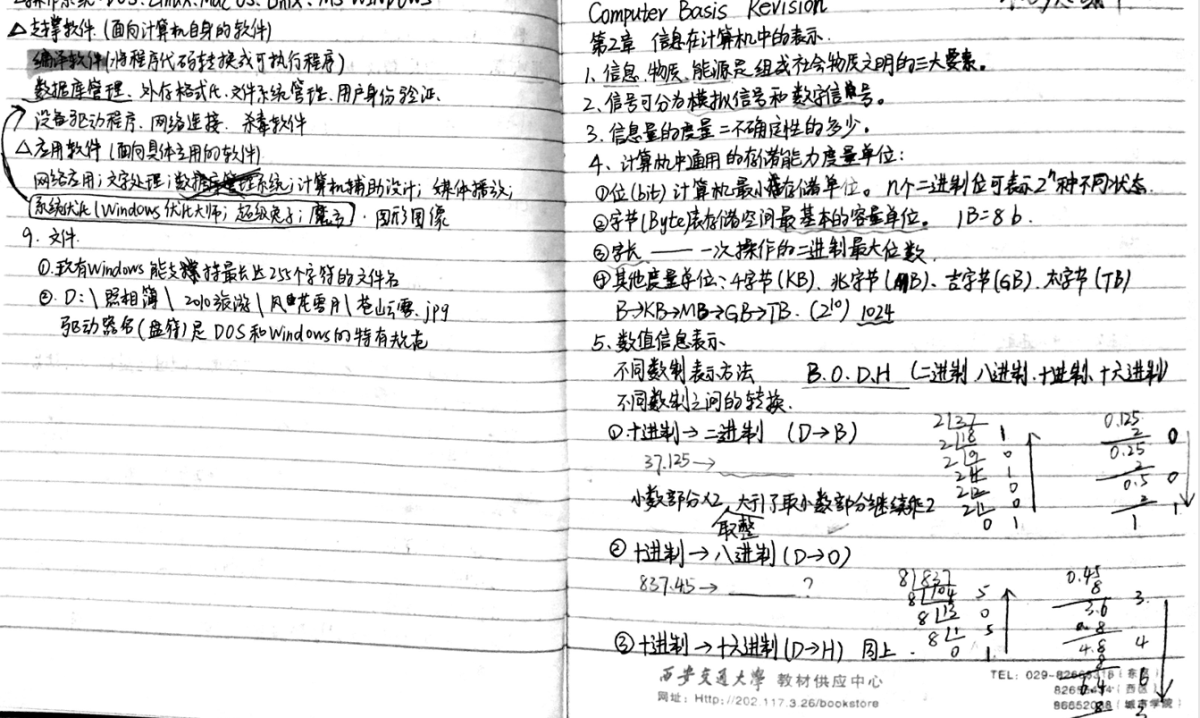 操作系统: DOS、Linux、Mac OS、Unix、MS Windows
△支撑软件 (面向计算机自身的软件)
编译软件(将程序代码转换成可执行程序)
数据库管理、外存格式化、文件系统管理、用户身份验证、
设备驱动程序、网络连接、杀毒软件
△应用软件 (面向具体应用的软件)
网络应用; 文字处理; 数据库管理系统; 计算机辅助设计; 媒体播放;
系统优化(Windows优化大师; 超级兔子; 魔方). 图形图像
9. 文件
①.所有Windows能支撑持最长达255个字符的文件名
②. D:\照相簿\2010旅游\风花雪月\苍山云雾.jpg
驱动器名(盘符)是DOS和Windows的特有规范
Computer Basis Revision
第2章 信息在计算机中的表示.
1. 信息、物质、能源是组成社会物质文明的三大要素。
2. 信号可分为模拟信号和数字信号。
3. 信息量的度量=不确定性的多少。
4. 计算机中通用的存储能力度量单位:
①位(bit) 计算机最小存储单位。n个二进制位可表示2ⁿ种不同状态.
②字节(Byte)度存储空间最基本的容量单位。 1B=8b.
③字长 —— 一次操作的二进制最大位数.
④其他度量单位: 千字节(KB)、兆字节(MB)、吉字节(GB)、太字节(TB)
B→KB→MB→GB→TB. (2¹⁰) 1024
5. 数值信息表示
不同数制表示方法 B.O.D.H (二进制.八进制.十进制、十六进制)
不同数制之间的转换.
①.十进制→二进制 (D→B)
37.125→
小数部分×2, 大于1了取小数部分继续乘2
取整
2 37
2 18 1
2 9 0
2 4 1
2 2 0
2 1 0
0 1
0.125
2 0
0.25
2
0.5 0
2
1 1
② 十进制→八进制(D→O)
837.45→ ?
8 837
8 104 5
8 13 0
8 1 5
0 1
0.45
8
3.6 3
8
4.8 4
8
6.4 6
8
③十进制→十六进制(D→H) 同上.
西安交通大学 教材供应中心
网址: Http://202.117.3.26/bookstore
TEL: 029-82668318(东区)
(西区)
(城市学院)